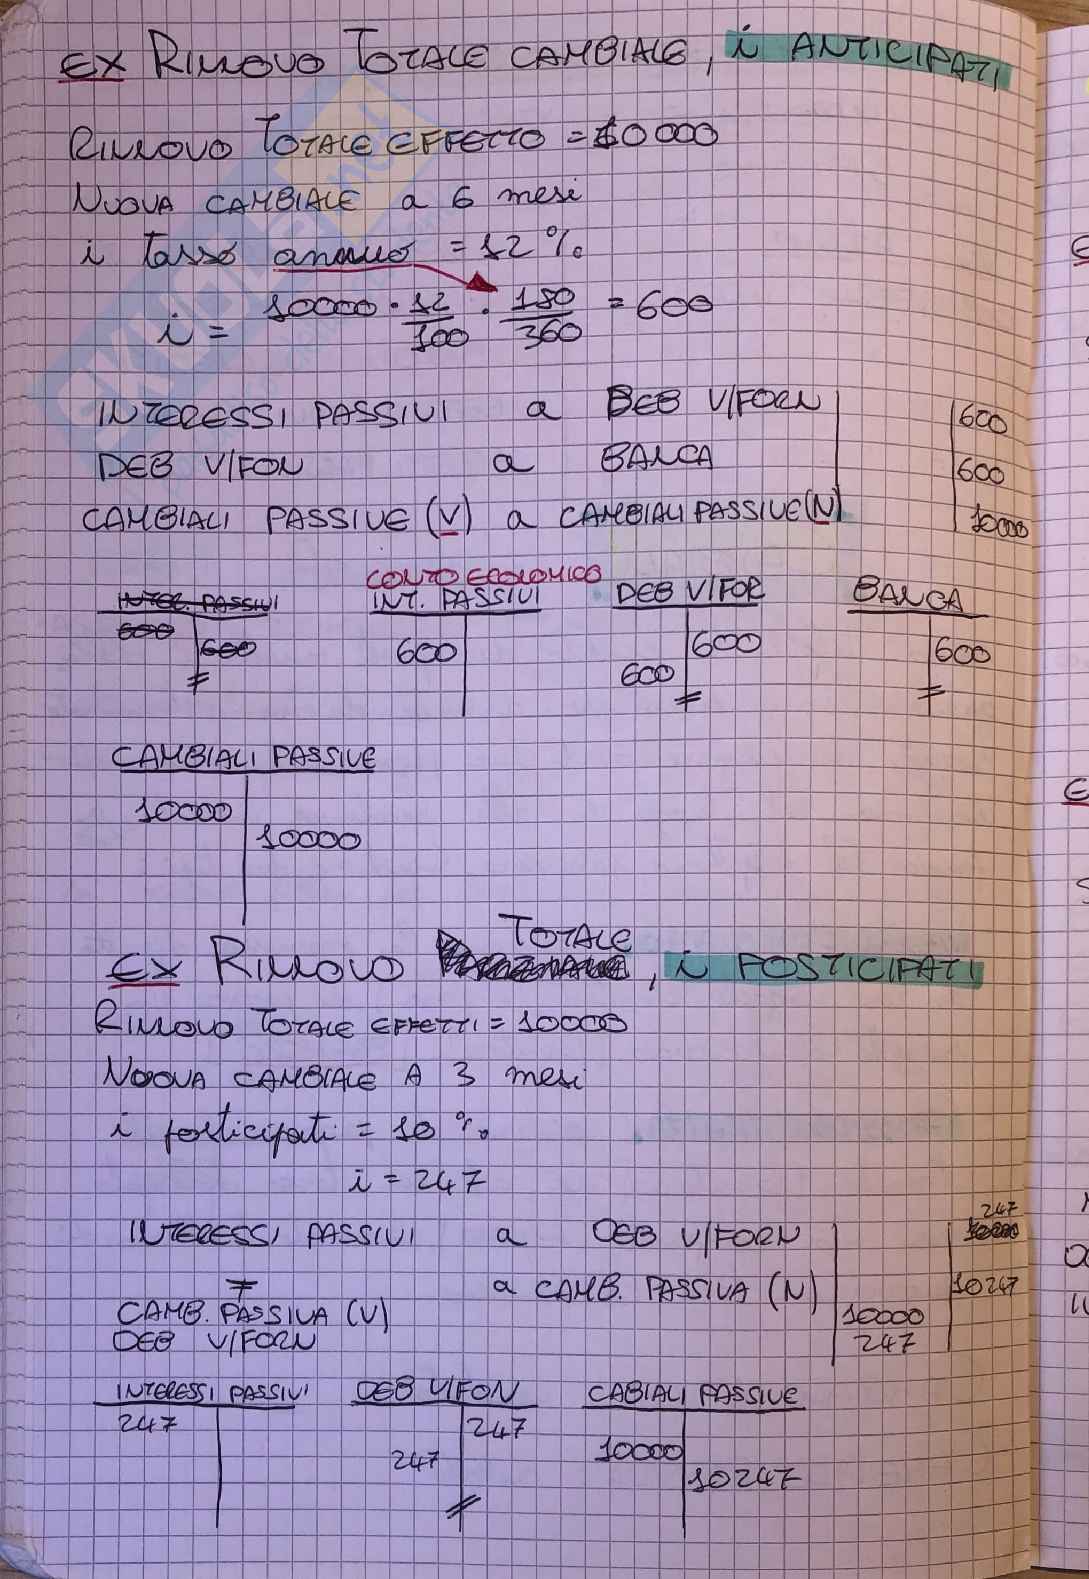 EX RINNOVO TOTALE CAMBIALE, i ANTICIPATI
RINNOVO TOTALE EFFETTO = 10000
NUOVA CAMBIALE a 6 mesi
i tasso annuo = 12%
i = 10000 · 12/100 · 180/360 = 600
INTERESSI PASSIVI a DEB V/FORN 600
DEB V/FON a BANCA 600
CAMBIALI PASSIVE (V) a CAMBIALI PASSIVE (N) 10000
CONTO ECONOMICO
INTER. PASSIVI INT. PASSIVI DEB V/FOR BANCA
600 600 600 600 600 600
CAMBIALI PASSIVE
10000
10000
TOTALE
EX RINNOVO , i POSTICIPATI
RINNOVO TOTALE EFFETTI = 10000
NUOVA CAMBIALE A 3 mesi
i posticipati = 10 %
i = 247
247
INTERESSI PASSIVI a DEB V/FORN 10000
≠ a CAMB. PASSIVA (N) 10247
CAMB. PASSIVA (V) 10000
DEB V/FORN 247
INTERESSI PASSIVI DEB V/FON CABIALI PASSIVE
247 247 10000
247 10247